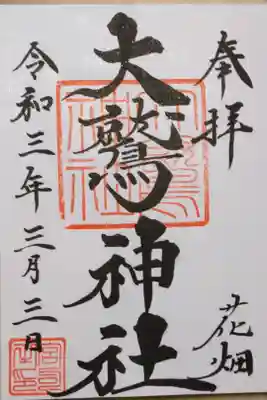 奉拝
花畑
大鷲神社
令和三年三月三日